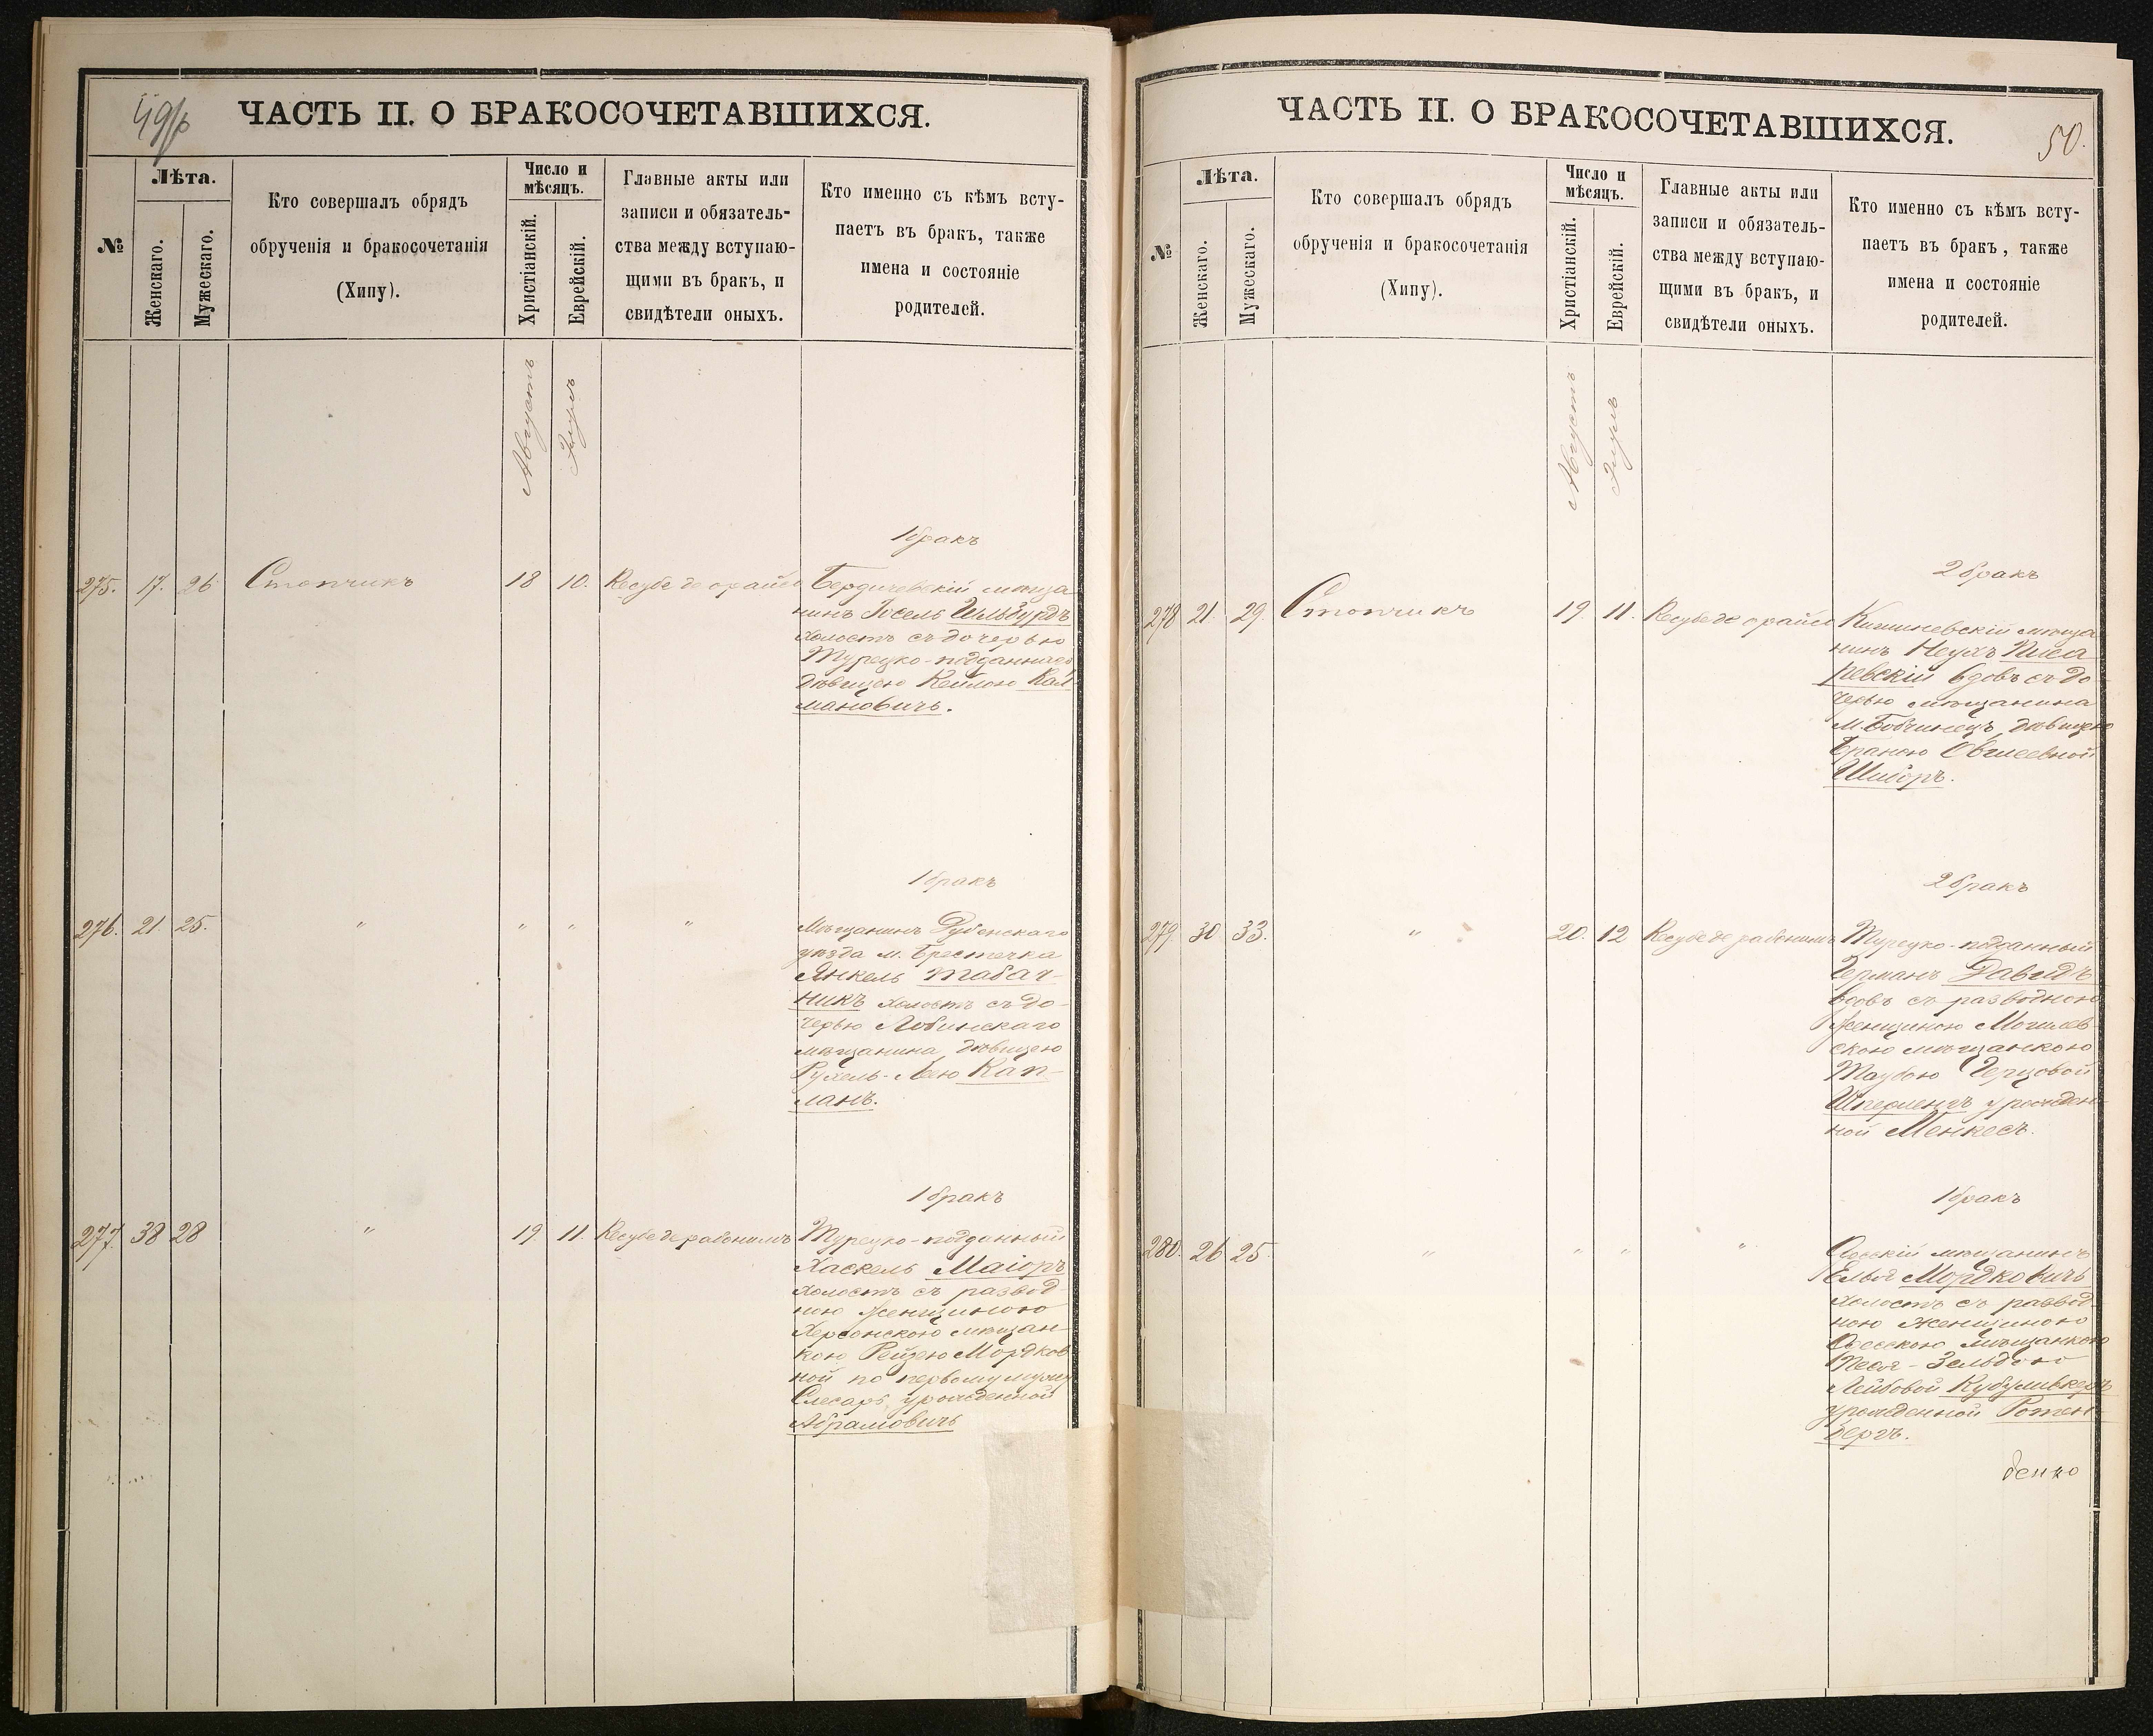 ЧАСТЬ II. О БРАКОСОЧЕТАВШИХСЯ.
№
Лѣта.
Женскаго.
Мужескаго.
Кто совершалъ обрядъ
обрученія и бракосочетанія
(Хипу).
Число и
мѣсяцъ.
Христіанскій.
Еврейскій.
Главные акты или
записи и обязатель-
ства между вступаю-
щими въ бракъ, и
свидѣтели оныхъ.
Кто именно съ кѣмъ всту-
паетъ въ бракъ, также
имена и состояніе
родителей.
Августъ
Элулъ
1 бракъ
275. 17. 26 Стопчикъ 18 10. Кесубе де орайсо Бердичевскій мѣща
нинъ Іосель
холостъ съ дочерью
Турецко-подданнаго
дѣвицею Кейлою Кал-
мановичъ.
1 бракъ
276. 21. 25. " " " " Мѣщанинъ Дубенскаго
уѣзда м. Берестечка
Янкель Табач-
никъ холостъ съ до-
черью
мѣщанина дѣвицею
Рухель-Леею Кап-
ланъ.
1 бракъ
277. 38 28 " 19 11 Кесубе де рабонимъ Турецко-подданный
Хаскель Маіоръ
холостъ съ развод
ною женщиною
Херсонскою мѣщан-
кою Рейзею Мордков
ной по первому мужу
Слесарь, урожденной
Абрамовичъ
ЧАСТЬ II. О БРАКОСОЧЕТАВШИХСЯ.
50.
№
Лѣта.
Женскаго.
Мужескаго.
Кто совершалъ обрядъ
обрученія и бракосочетанія
(Хипу).
Число и
мѣсяцъ.
Христіанскій.
Еврейскій.
Главные акты или
записи и обязатель-
ства между вступаю-
щими въ бракъ, и
свидѣтели оныхъ.
Кто именно съ кѣмъ всту-
паетъ въ бракъ, также
имена и состояніе
родителей.
Августъ
Элулъ
2 бракъ
278 21. 29. Стопчикъ 19. 11. Кесубе де орайсо Кишиневскій мѣща
нинъ Неухъ Писа
ревскій вдовъ съ до
черью мѣщанина
м. Бобринецъ, дѣвицею
Бранею Овшеевной
2 бракъ
279. 30 33. " 20. 12 Кесубе де рабонимъ Турецко-подданный
Германъ Давидъ
вдовъ съ разводною
женщиною Могилев
скою мѣщанкою
Таубою Герцовой
урожден
ной Менкесъ.
1 бракъ
280. 26 25. " " " " Одесскій мѣщанинъ
Елья Мордковичъ
холостъ съ развод
ною женщиною
Одесскою мѣщанкою
Песя-Зельдою
Лейбовой
урожденной Ротен-
бергъ.